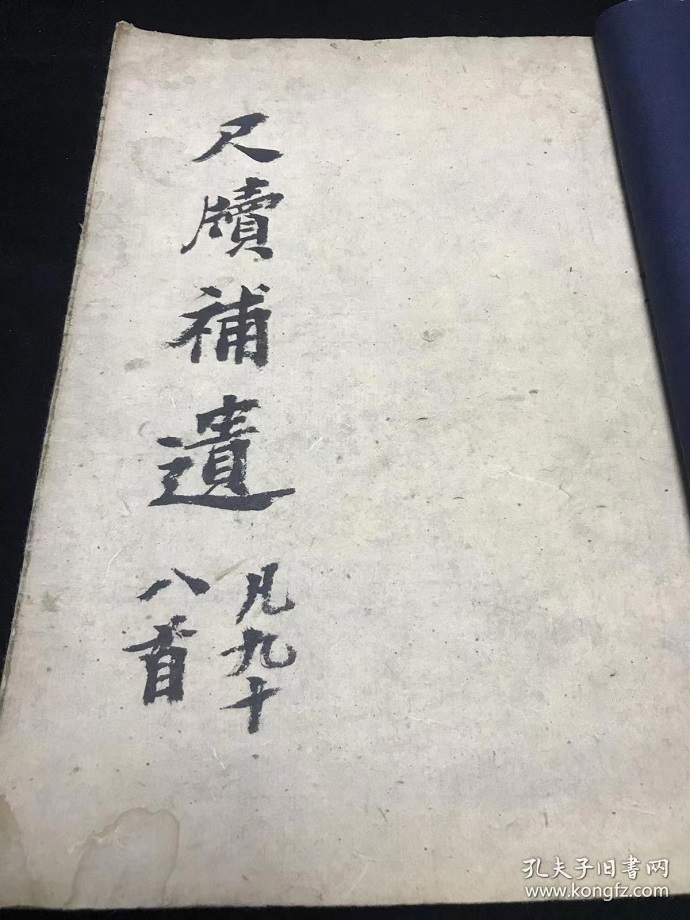 尺牘補遺
凡九十
八首
孔夫子旧書网
www.kongfz.com